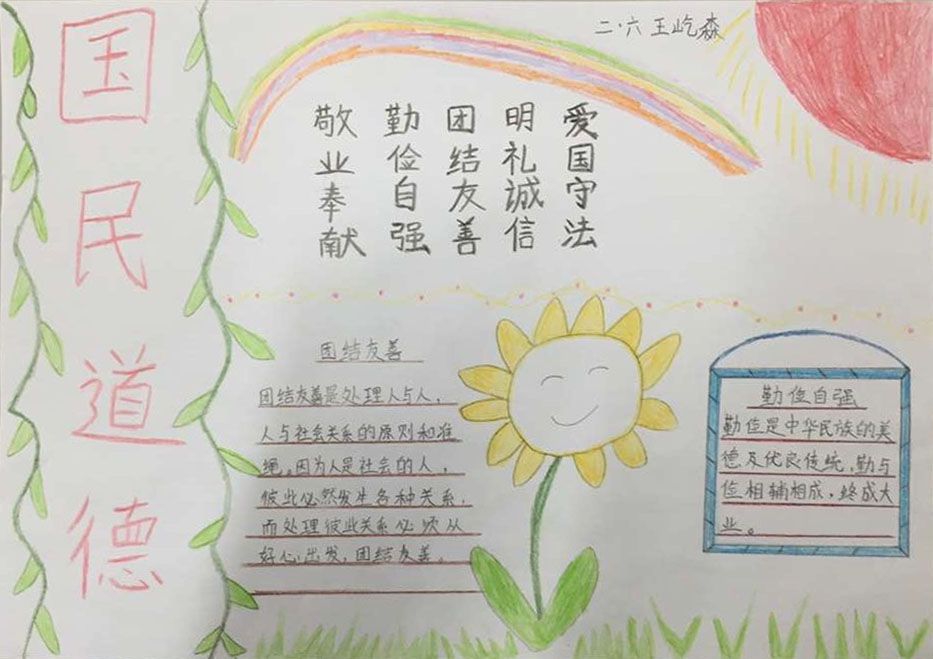 国民道德
二·六 王屹森
爱国守法
明礼诚信
团结友善
勤俭自强
敬业奉献
团结友善
团结友善是处理人与人,
人与社会关系的原则和准
绳。因为人是社会的人,
彼此必然发生各种关系,
而处理彼此关系必须从
好心出发,团结友善。
勤俭自强
勤俭是中华民族的美
德及优良传统,勤与
俭相辅相成,终成大
业。